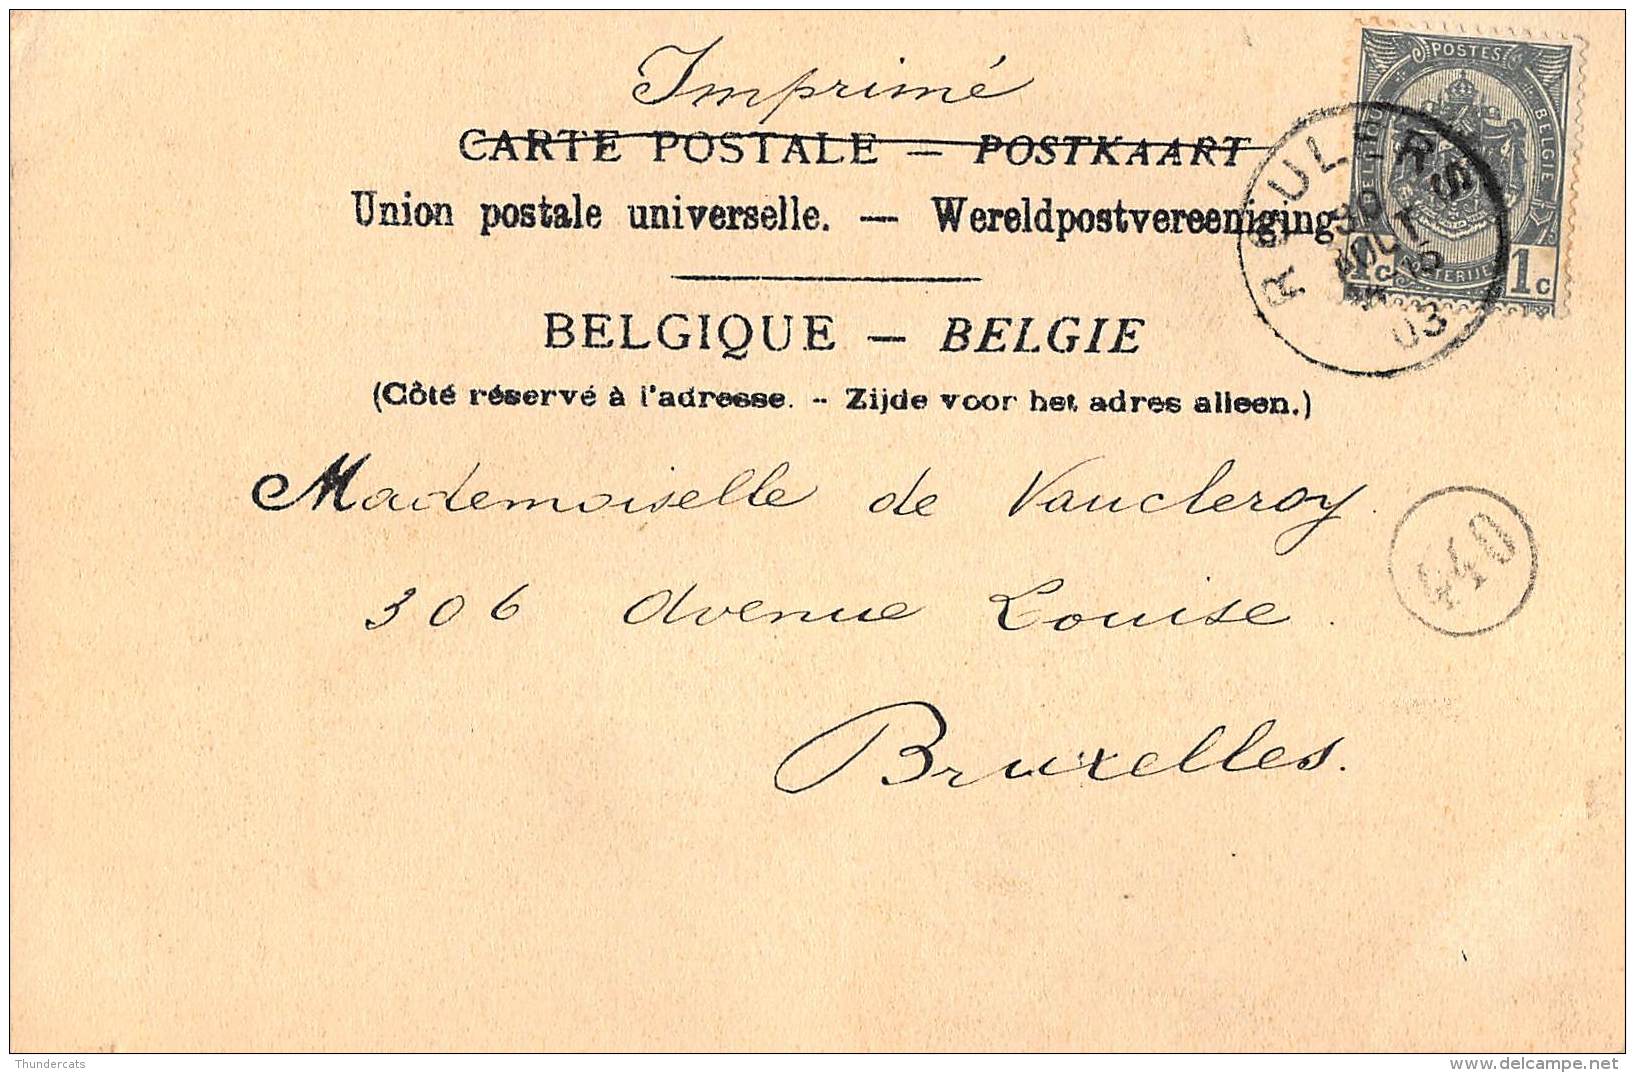 Imprimé
CARTE POSTALE — POSTKAART
Union postale universelle. — Wereldpostvereeniging
BELGIQUE — BELGIE
(Côté réservé à l'adresse. - Zijde voor het adres alleen.)
POSTES
BELGIE
1c
ROULERS
30
AOUT
03
Mademoiselle de Vaucleroy.
440
306 Avenue Louise.
Bruxelles.
Thundercats
www.delcampe.net